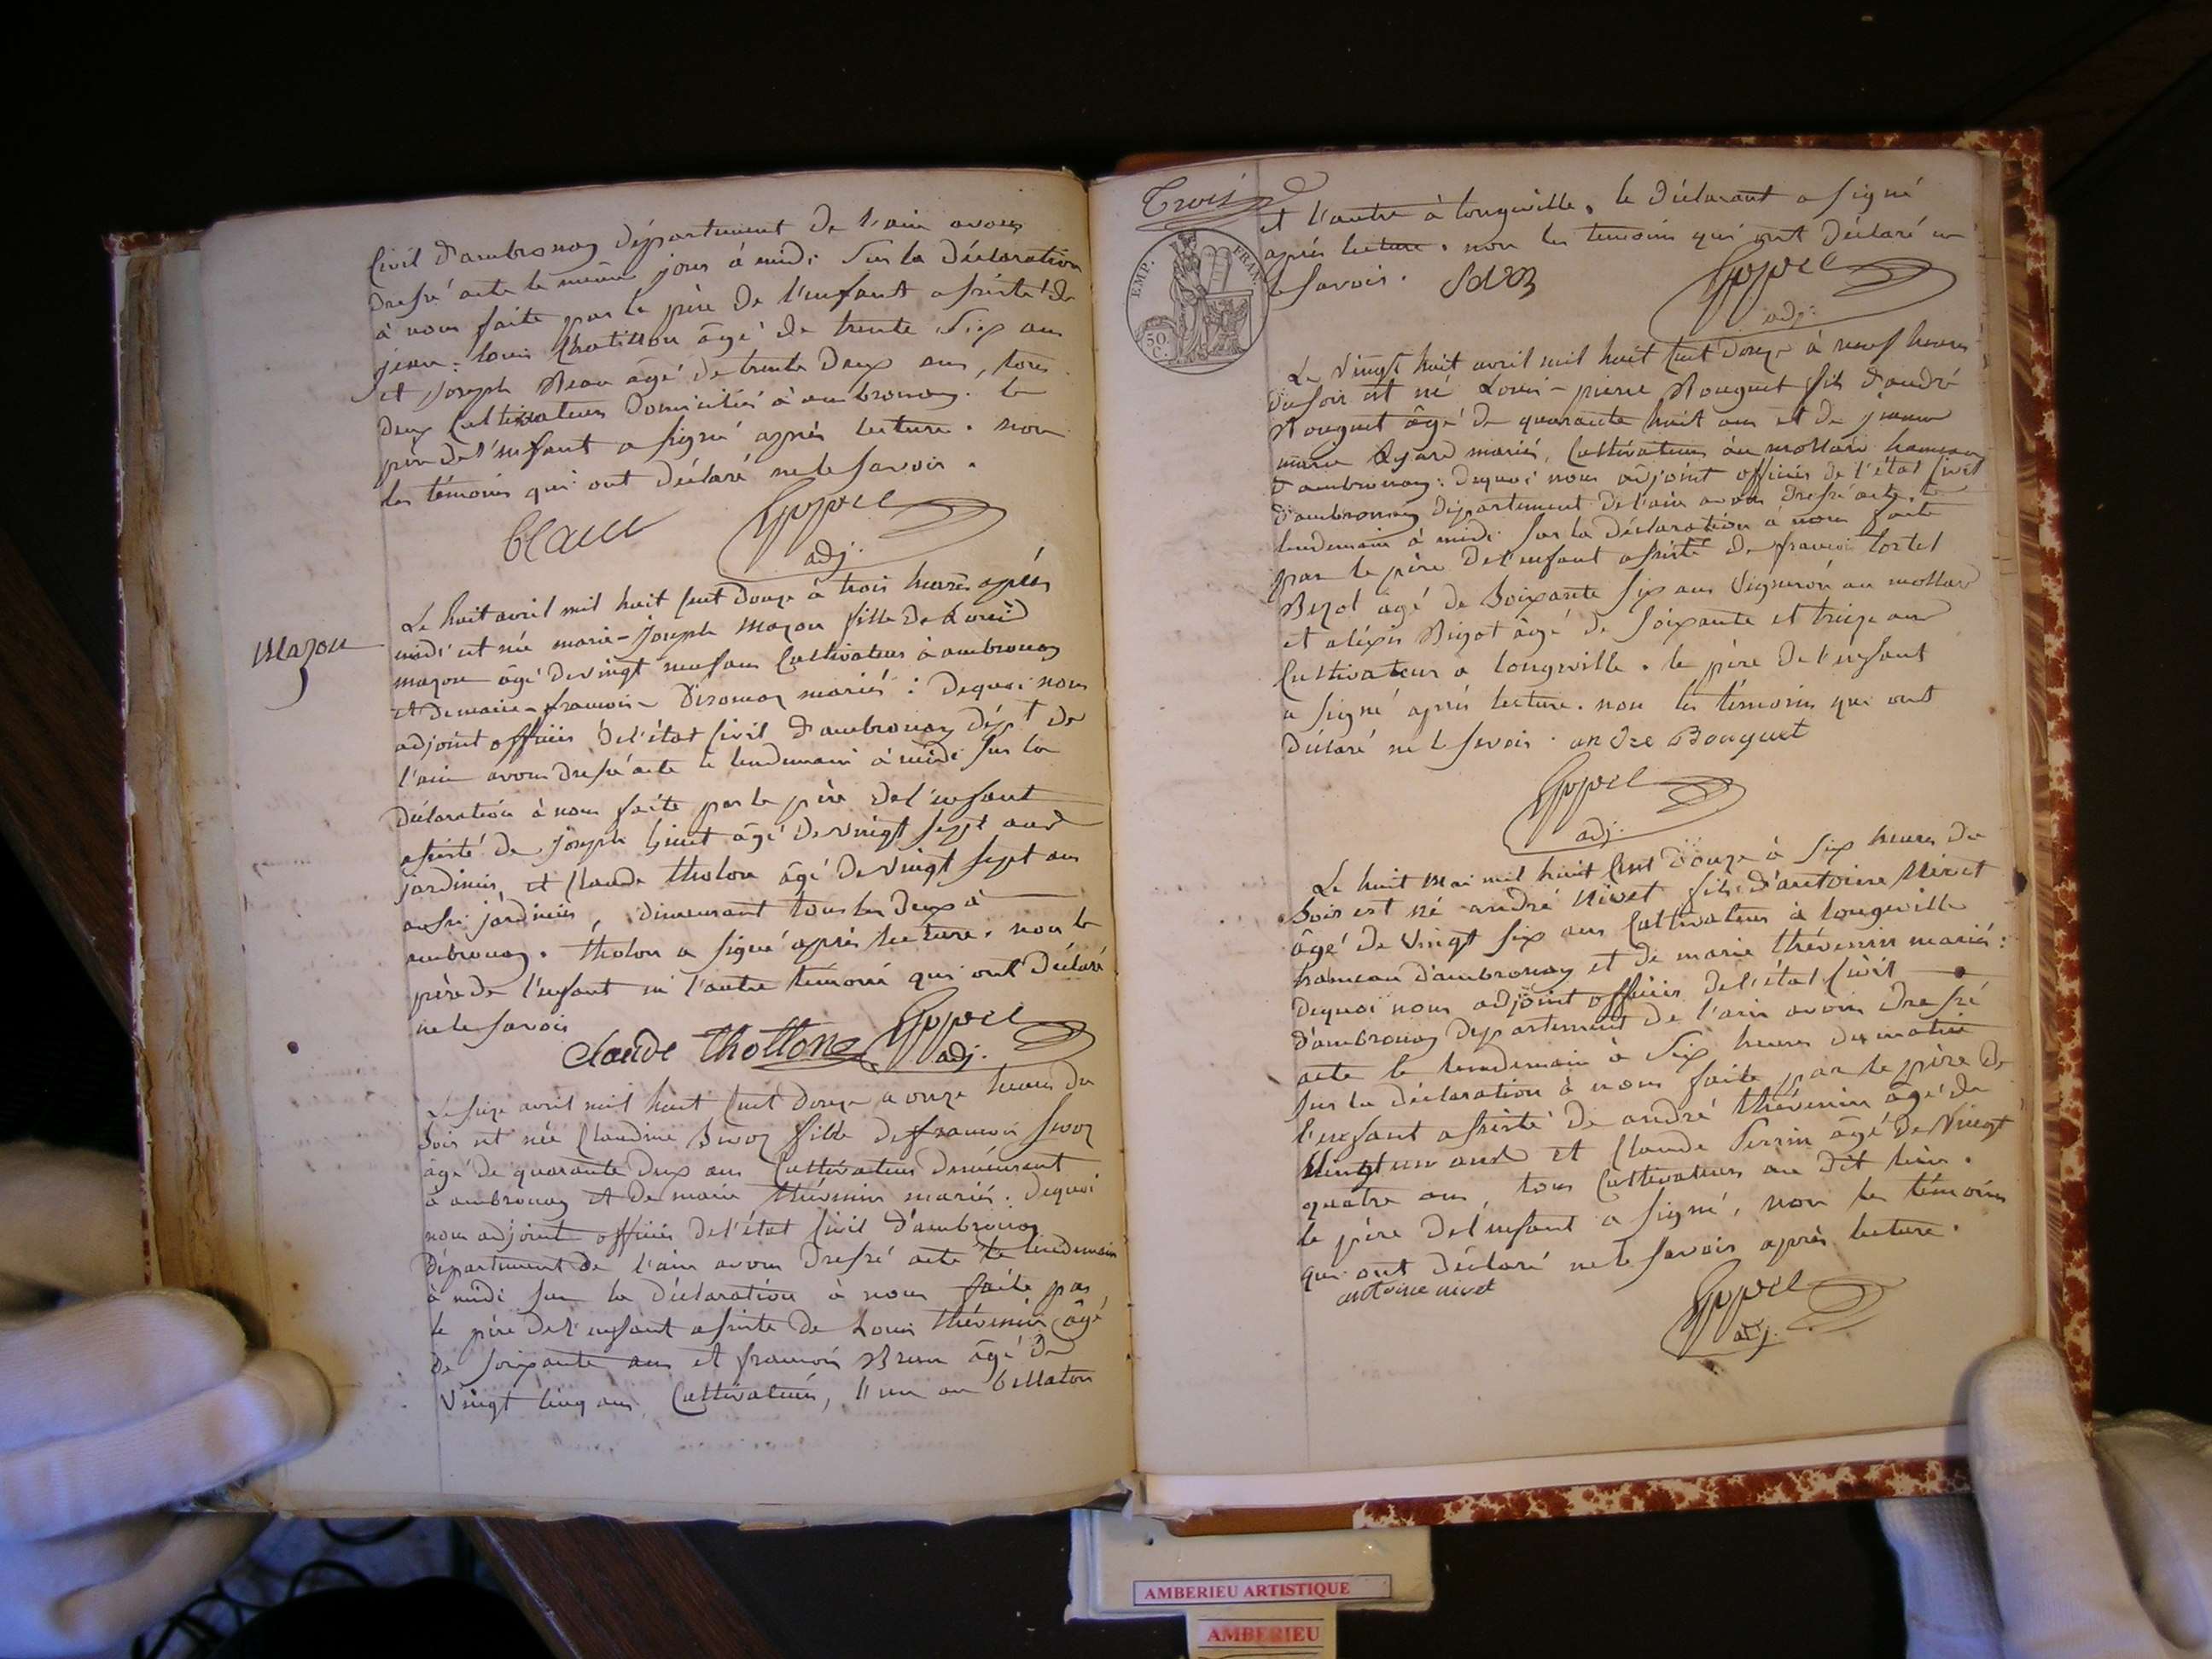 Civil d'ambronay département de l'ain avons
dressé acte le même jour à midi sur la déclaration
à nous faite par le père de l'enfant assisté de
jean-louis Chatillon âgé de trente six ans
et joseph âgé de trente deux ans, tous
deux Cultivateurs Domiciliés à ambronay. le
père de l'enfant a signé après lecture. non
les témoins qui ont déclaré ne le savoir.
adj.
mazon
Le huit avril mil huit Cent Douze à trois heures après
midi est née marie-joseph mazon fille de Louis
mazon âgé de vingt neuf ans Cultivateur à ambronay
et de marie-françoise mariés : De quoi nous
adjoint officier de l'état Civil d'ambronay dépt de
l'ain avons dressé acte le lendemain à midi sur la
Déclaration à nous faite par le père de l'enfant
assisté de joseph âgé de vingt sept ans
jardinier, et Claude tholon âgé de vingt sept ans
aussi jardinier, demeurant tous les deux à
ambronay. tholon a signé après lecture. non le
père de l'enfant ni l'autre témoin qui ont déclaré
ne le savoir
claude thollon
adj.
Le seize avril mil huit Cent Douze a onze heures du
Soir est née Claudine fille de françois
âgé de quarante Deux ans Cultivateur demeurant
à ambronay et De marie thévenin mariés. De quoi
nous adjoint officier de l'état Civil d'ambronay
Département De l'ain avons dressé acte le lendemain
à midi sur la déclaration à nous faite par
le père de l'enfant assisté de Louis thévenin âgé
de soixante ans et françois Brun âgé de
Vingt cinq ans, Cultivateurs, l'un au bellaton
Trois
EMP. FRAN.
50 C.
et l'autre à longeville, le déclarant a signé
après lecture. non les temoins qui ont déclaré ne
le savoir.
adj.
Le Vingt huit avril mil huit Cent Douze à neuf heures
du soir est né Louis-pierre Bouguet fils d'andré
Bouguet âgé de quarante huit ans et de jeanne
marie mariés, Cultivateurs au mollard hameau
d'ambronay : De quoi nous adjoint officier de l'état Civil
d'ambronay Département de l'ain avons dressé acte le
lendemain à midi sur la déclaration à nous faite
par le père de l'enfant assisté de françois
âgé de Soixante six ans Vigneron au mollard
et aléxis âgé de soixante et treize ans
Cultivateur a longeville. le père de l'enfant
a signé après lecture. non les témoins qui ont
déclaré ne le savoir. andre Bouguet
adj.
Le huit Mai mil huit Cent Douze à Six heures du
Soir est né andré Nivet fils d'antoine Nivet
âgé de Vingt six ans Cultivateur à longeville
hameau d'ambronay et de marie thévenin mariés :
De quoi nous adjoint officier de l'état Civil
d'ambronay Département de l'ain avons dressé
acte le lendemain à Six heures du matin
sur la déclaration à nous faite par le père de
l'enfant assisté de andré thévenin âgé de
Vingt un ans et Claude Perrin âgé de Vingt
quatre ans, tous Cultivateurs au dit lieu.
le père de l'enfant a signé, non les témoins
qui ont déclaré ne le savoir après lecture.
antoine nivet
adj.
AMBERIEU ARTISTIQUE
AMBERIEU